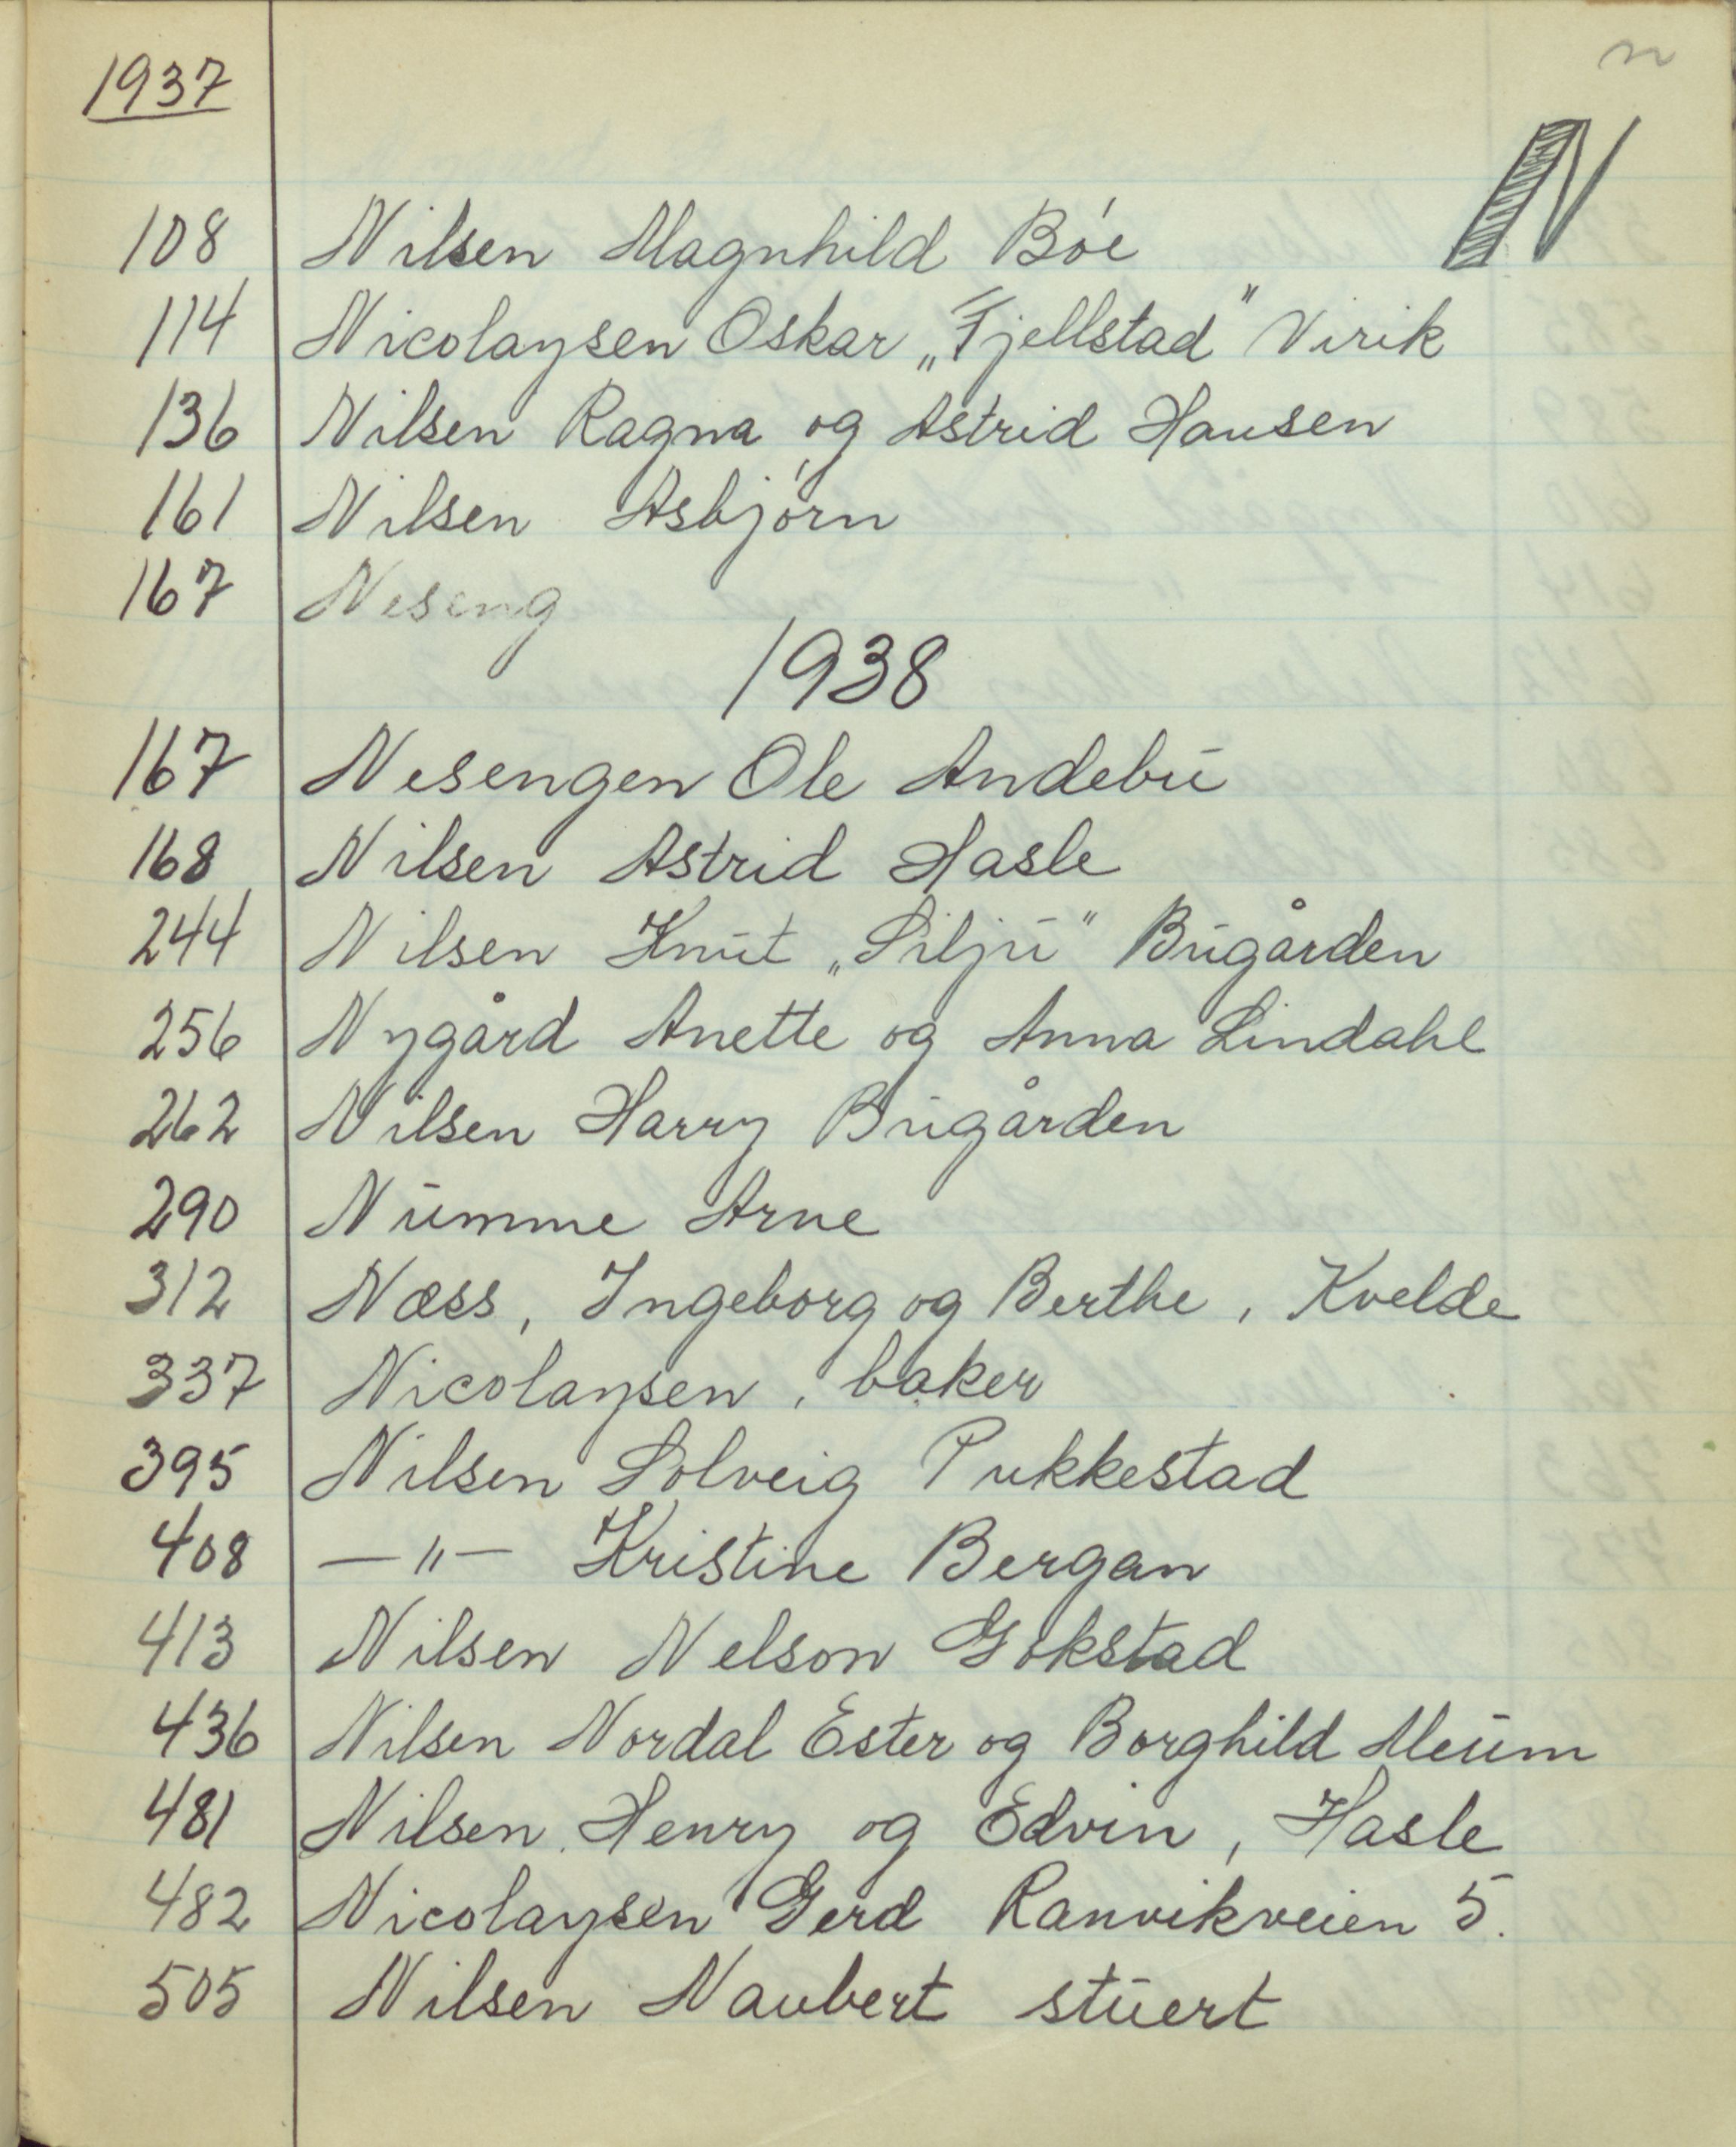 1937
n
N
108 Nilsen Magnhild Bøe
114 Nicolaysen Oskar „Fjellstad" Virik
136 Nilsen Ragna og Astrid Hansen
161 Nilsen Asbjørn
167 Neseng
1938
167 Nesengen Ole Andebu
168 Nilsen Astrid Hasle
244 Nilsen Knut „Silju" Bugården
256 Nygård Anette og Anna Lindahl
262 Nilsen Harry Bugården
290 Numme Arne
312 Næss, Ingeborg og Berthe, Kvelde
337 Nicolaysen, baker
395 Nilsen Solveig Pukkestad
408 —"— Kristine Bergan
413 Nilsen Nelson Gokstad
436 Nilsen Nordal Ester og Borghild Meum
481 Nilsen, Henry og Edvin, Hasle
482 Nicolaysen Gerd Ranvikveien 5.
505 Nilsen Naubert stuert